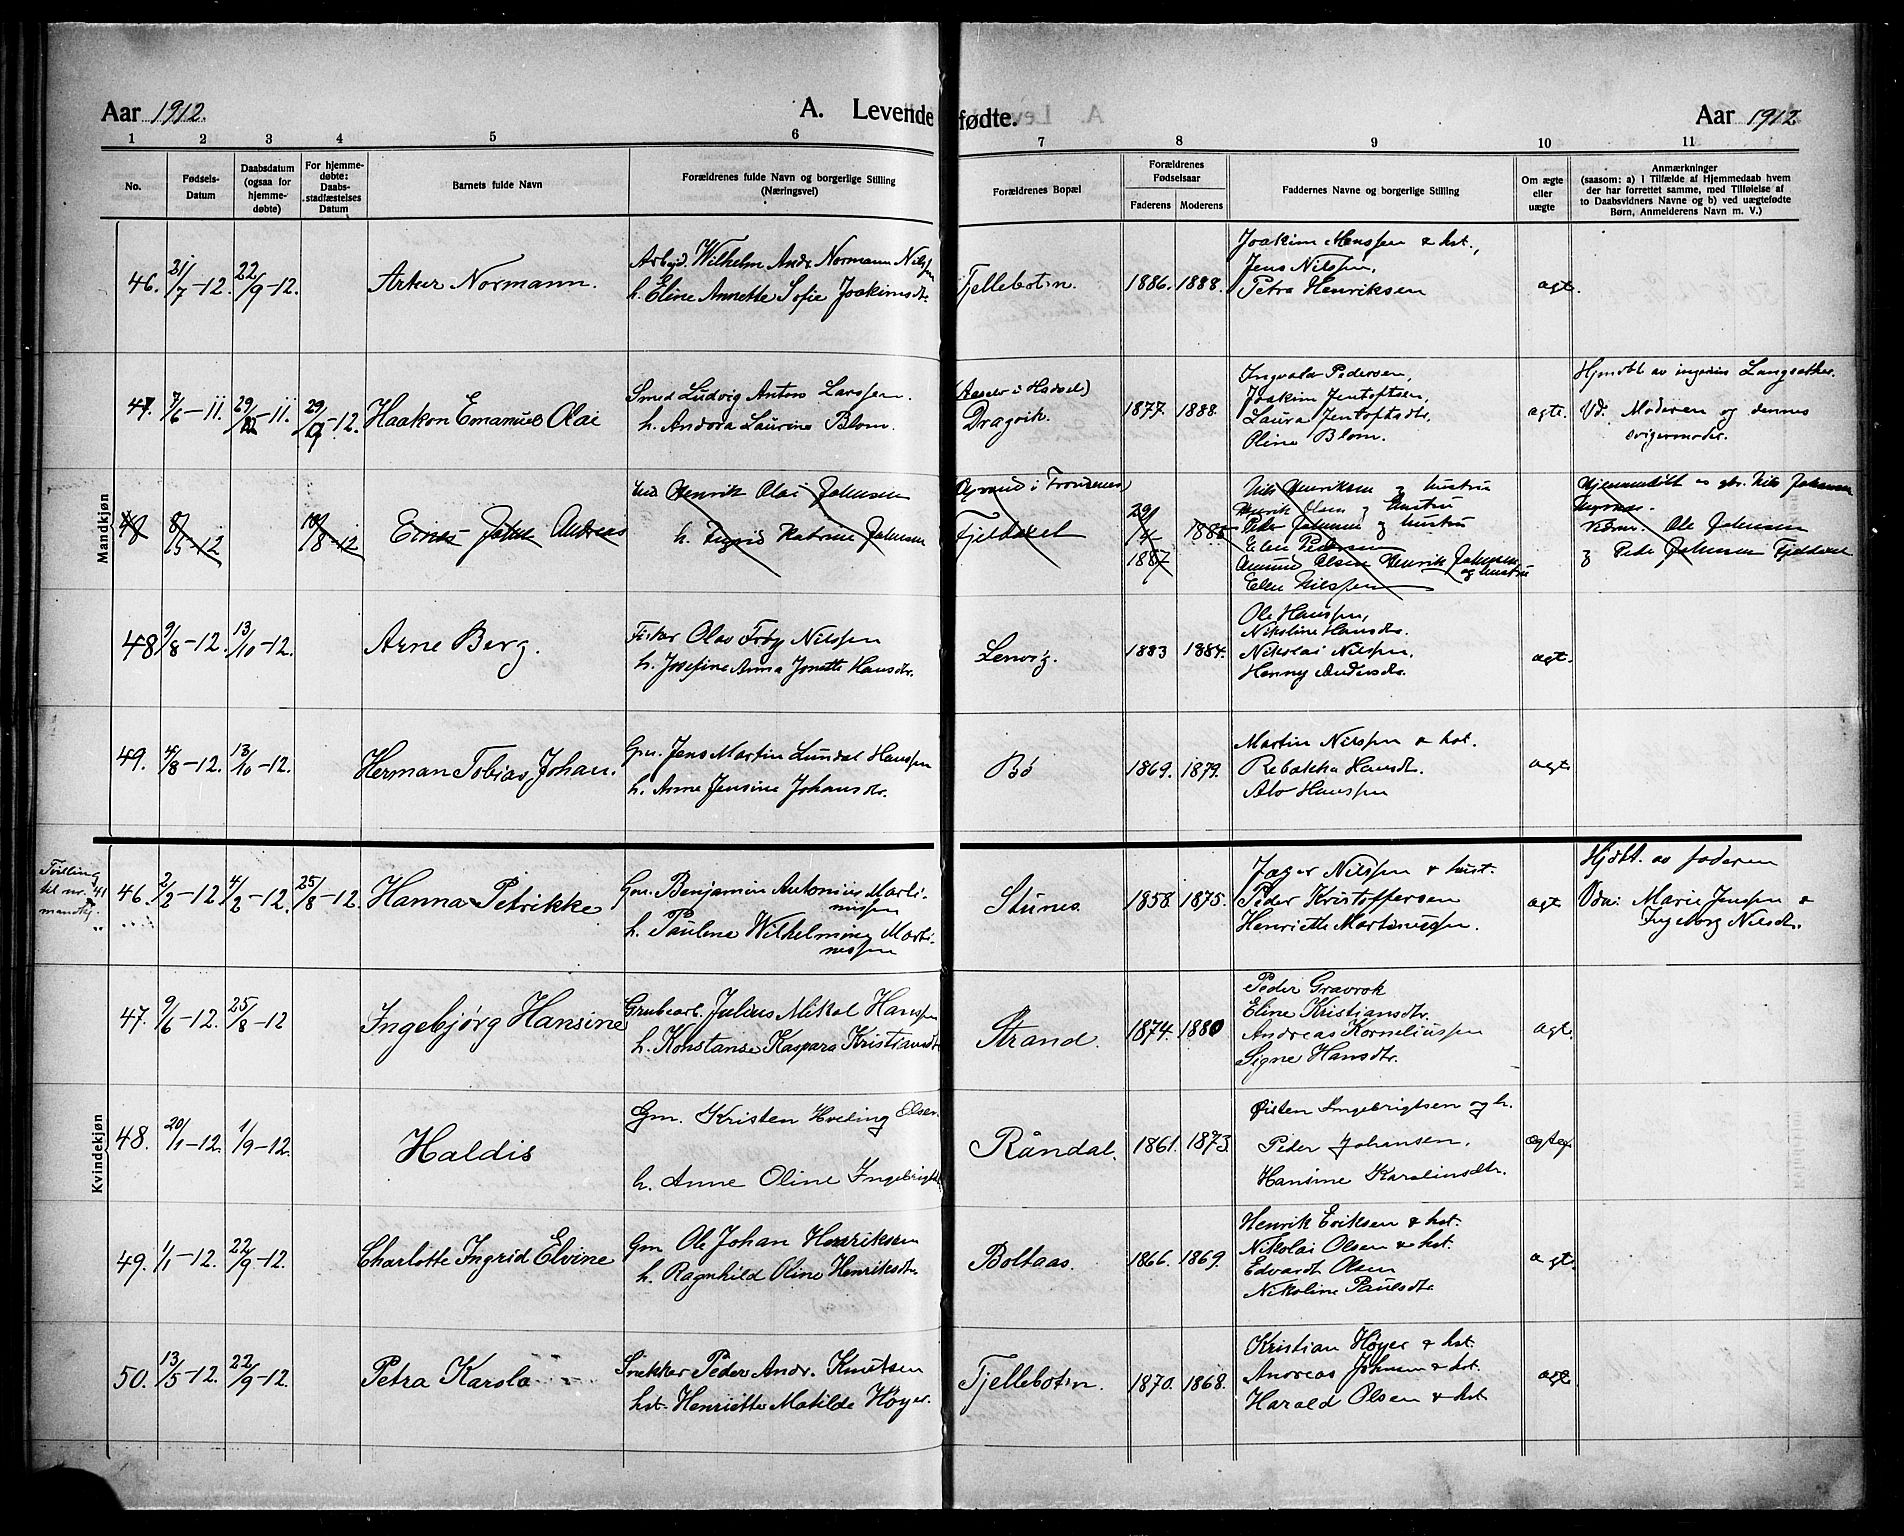 Aar 1912. A. Levendefødte. Aar 1912
1 2 3 4 5 6 7 8 9 10 11
No.
Fødsels-
Datum
Daabsdatum
(ogsaa for
hjemme-
døbte)
For hjemme-
døbte:
Daabs-
stadfæstelses
Datum
Barnets fulde Navn
Forældrenes fulde Navn og borgerlige Stilling
(Næringsvei)
Forældrenes Bopæl
Forældrenes
Fødselsaar
Faderens Moderens
Faddernes Navne og borgerlige Stilling
Om ægte
eller
uægte
Anmærkninger
(saasom: a) i Tilfælde af Hjemmedaab hvem
der har forrettet samme, med Tilføielse af
to Daabsvidners Navne og b) ved uægtefødte
Børn, Anmelderens Navn m. V.)
Mandkjøn
46. 21/7-12. 22/9-12. Arker Normann.
Arbejd. Wilhelm Andr. Normann Nilssen
h. Eline Annette Sofie Joakimsdtr.
Fjellebotn. 1886. 1888.
Joakim Monssen & hst.,
Jens Nilssen,
Petra Henriksen
agt.
47. 7/6-11. 29/-11. 29/9-12. Haakon Emanuel Olai
Smed Ludvig Anton Larssen.
h. Andora Laurine Blom.
Dragvik. 1877. 1888.
Ingvald Pedersen,
Joakim Jentoftsen,
Laura Jentoftsdtr.
Oline Blom.
agte.
Hjemdbt av ingeniør Langsæther.
Vd. Moderen og dennes
svigermoder.
48 8/5-12 18/8-12 Einar Johan Andreas
Henrik Olai Johansen
h. Ingrid Katrine Johansen
Fjeldaket
29/4 1887 1885
Nils Henriksen og hustru
Henrik Olsen og hustru
Peder Johansen og hustru
Elen Pedersen
Amund Olsen Henrik Johansen
og hustru
Elen Nilssen
Hjemmedøbt av Nils Johansen
Ole Johansen
og Peder Johansen Fjeldaket
48 9/8-12. 13/10-12. Arne Berg.
Fisker Olav Frøy Nilssen
h. Josefine Anna Jonette Hansdtr.
Lenvig. 1883 1884.
Ole Hanssen,
Nikoline Hansdtr.
Nikolai Nilssen,
Henny Andersdtr.
agt.
49. 4/8-12. 13/10-12. Herman Tobias Johan.
Gm. Jens Martin Lundal Hanssen
h. Anne Jensine Johansdtr.
Bø 1869. 1879.
Martin Nilssen & hst.
Rebekka Hansdtr.
Alv Hanssen
agt
Kvindekjøn
Tvilling
til nr. 41
mandkj.
46. 2/2-12 4/2-12. 25/8-12. Hanna Petrikke
Gm. Benjamin Antonius Marti-
nussen
h. Paulene Wilhelmine Marti-
nussen
Stunes. 1858. 1875.
Jæger Nilssen & hust.
Peder Kristoffersen
Henriette Martinussen.
agt
Hjdbt. av faderen
Vda: Marie Jenssen &
Ingeborg Nilsdtr.
47. 9/6-12. 25/8-12 Ingebjørg Hansine
Grubearb. Julius Mikal Hanssen
h. Konstanse Kaspara Kristiansdtr
Strand. 1874. 1880
Peder Gravrok
Eline Kristiansdtr.
Andreas Korneliussen
Signe Hansdtr.
agt.
48. 20/1-12. 1/9-12. Haldis
Gm. Kristen Hveding Olsen
h. Anne Oline Ingebrigtsd.
Råndal. 1861. 1873.
Øisten Ingebrigtsen og h.
Peder Johansen.
Hansine Karolinsdtr.
ægte
49. 1/1-12. 22/9-12. Charlotte Ingrid Elvine
Gm Ole Johan Henriksen
h. Ragnhild Oline Henriksdtr.
Boltaas. 1866. 1869.
Henrik Eriksen & hst.
Nikolai Olsen & hst.
Edvardt Olsen
Nikoline Paulsdtr
agt.
50. 13/5-12. 22/9-12. Petra Karola
Snekker Peder Andr. Knutsen
hst. Henriette Matilde Høyer.
Fjellebotn. 1870. 1868.
Kristian Høyer & hst.
Andreas Johnsen & hst.
Harald Olsen & hst
agt